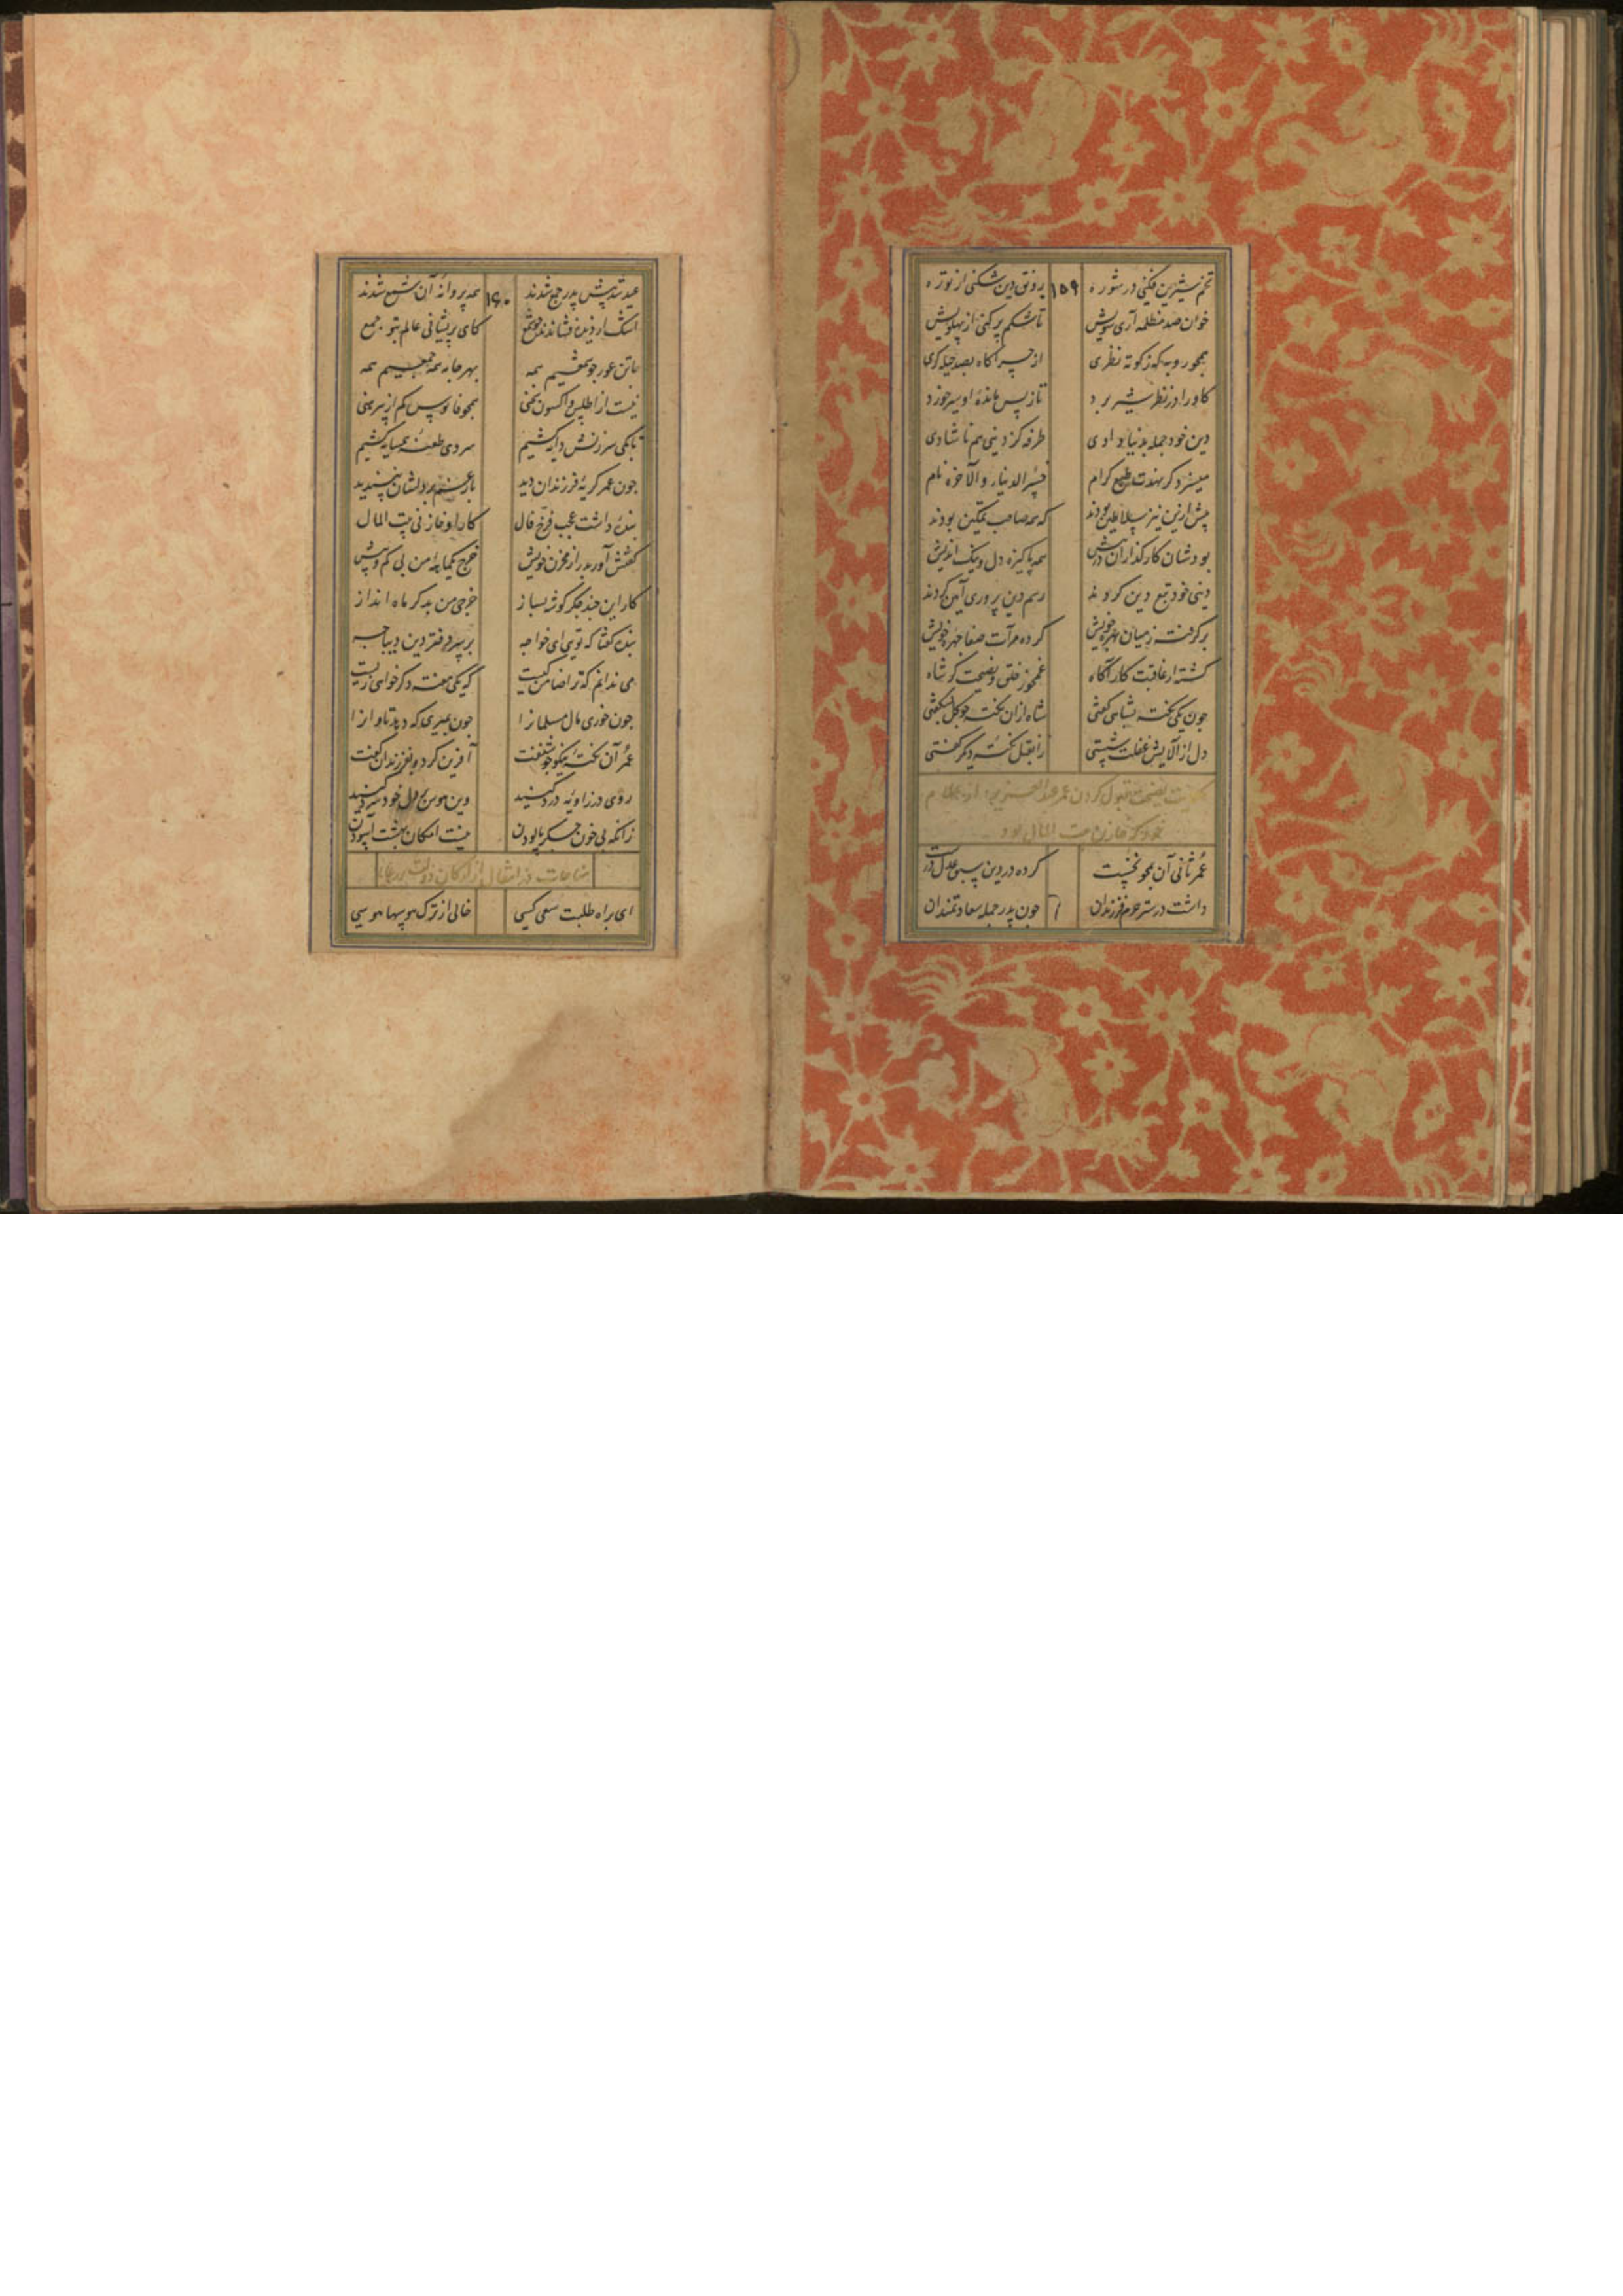 تخم شیرین فکنی در شوره ۱۵۹ رونق دین شکنی از توره
خوان صد مظلمه آری سویش تا شکم پر کنی از پهلویش
همچو روبه که ز کوته نظری از چراگاه بصد حیله گری
گاو را در نظر شیر برد تا ز پس مانده او سیر خورد
دین خود جمله بدنیا دادی طرفه کز دنیی هم ناشادی
میسزد گر نهدت طبع کرام خسر الدنیا والآخره نام
پیش ازین نیز سلاطین بودند که همه صاحب تمکین بودند
بودشان کارگذاران در پیش همه پاکیزه دل و نیک اندیش
دنیی خود تبع دین کردند رسم دین پروری آیین کردند
برگرفته ز میان بهره خویش کرده مرآت صفا چهره خویش
گشته از عاقبت کار آگاه غمخور خلق و نصیحت گر شاه
چون یکی نکته بشاهی گفتی شاه از ان نکته چو گل بشکفتی
دل از آلایش غفلت شستی زان قبل نکته دیگر
حکایت نصیحت قبول کردن عمر عبد العزیز از غلام
خود که خازن بیت المال بود
عمر ثانی آن همچو نخست کرده در دین سبق عدل درست
داشت در ستر حرم فرزندان چون پدر جمله سعادتمندان
عید شد پیش پدر جمع شدند ۱۶۰ همه پروانه آن شمع شدند
اشک از دیده فشاندند چو شمع کای پریشانی عالم بتو جمع
با تن عور چو شمعیم همه بهر جامه همه جمعیم همه
نیست از اطلس و اکسون سخنی همچو فانوس کم از پیرهنی
تا بکی سرزنش دایه کشیم سردی طعنه همسایه کشیم
چون عمر گریه فرزندان دید بار غم بر دلشان نپسندید
بنده داشت عجب فرخ فال کار او خازنی بیت المال
گفتش آور بدر از مخزن خویش خرج یکماهه من بی کم و بیش
کار این چند جگر گوشه بساز خرجی من بدگر ماه انداز
بنده گفتا که تویی ای خواجه بر سر دفتر دین دیباجه
می ندانم که ترا ضامن کیست که یکی هفته دگر خواهی زیست
چون خوری مال مسلمانان را چون بمیری که دهد تاوان را
عمر آن نکته نیکو چو شنفت آفرین کرد و بفرزندان گفت
روی در زاویه درد کنید وین هوس بر دل خود سرد کنید
زانکه بی خون جگر پالودن نیست امکان بهشت آسودن
مناجات در انتقال از ارکان دولت
ای براه طلبت سعی کسی خالی از ترک هوسها هوسی